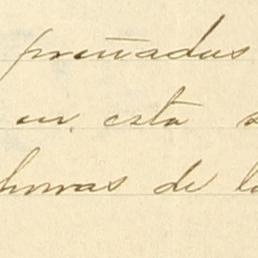 preñadas
en esta
horas de la